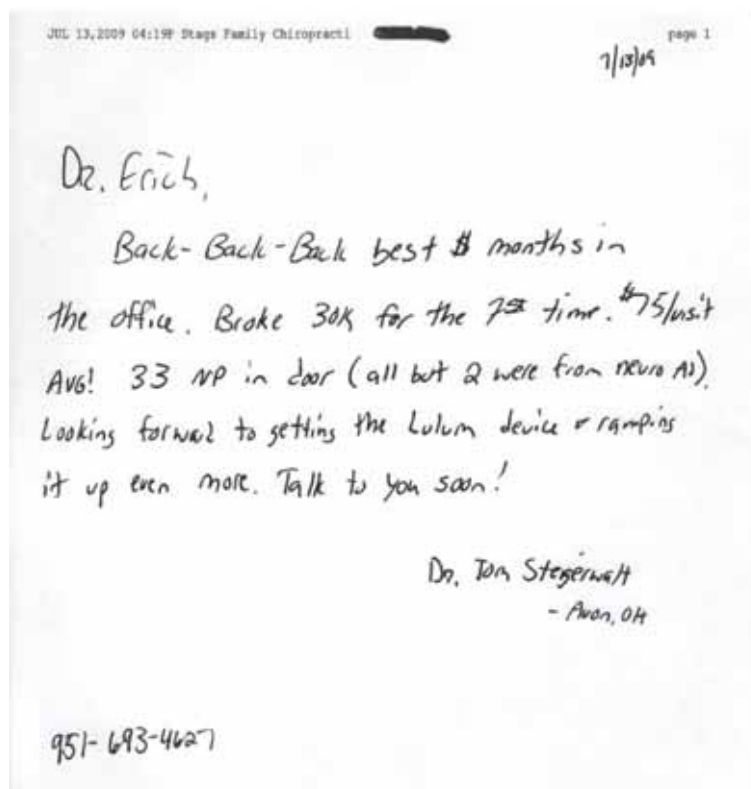 JUL 13,2009 04:19P Stags Family Chiropracti page 1
7/13/09
Dr. Erich,
Back-Back-Back best $ months in
the office. Broke 30K for the 1st time. $75/visit
AVG! 33 NP in door (all but 2 were from neuro AD).
Looking forward to getting the Lulum device & ramping
it up even more. Talk to you soon!
Dr. Tom Stegerwalt
- Avon, OH
951-693-4627